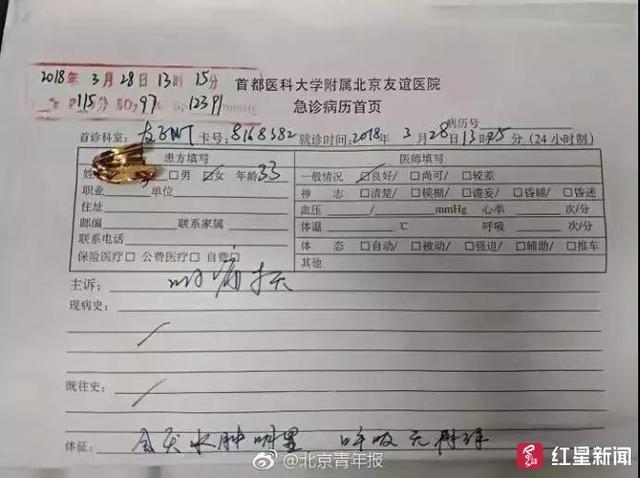 2018年3月28日13时15分
P115分 SO₂97% BP 123/91 mmHg
首都医科大学附属北京友谊医院
急诊病历首页
病历号
首诊科室: 卡号: 8168382 就诊时间: 2018年3月28日13时25分(24小时制)
患方填写 医师填写
姓 □男 □女 年龄 33 一般情况 □良好/ □尚可/ □较差
职业 单位 神 志 □清楚/ □模糊/ □谵妄/ □昏睡/ □昏迷
住址 血压 / mmHg 心率 次/分
邮编 联系家属 体温 ℃ 呼吸 次/分
联系电话 体 态 □自动/ □被动/ □强迫/ □辅助/ □推车
保险医疗□ 公费医疗□ 自费□ 其他
主诉: 咽痛
现病史:
既往史:
体征: 会厌水肿明显 呼吸无
@北京青年报
红星新闻